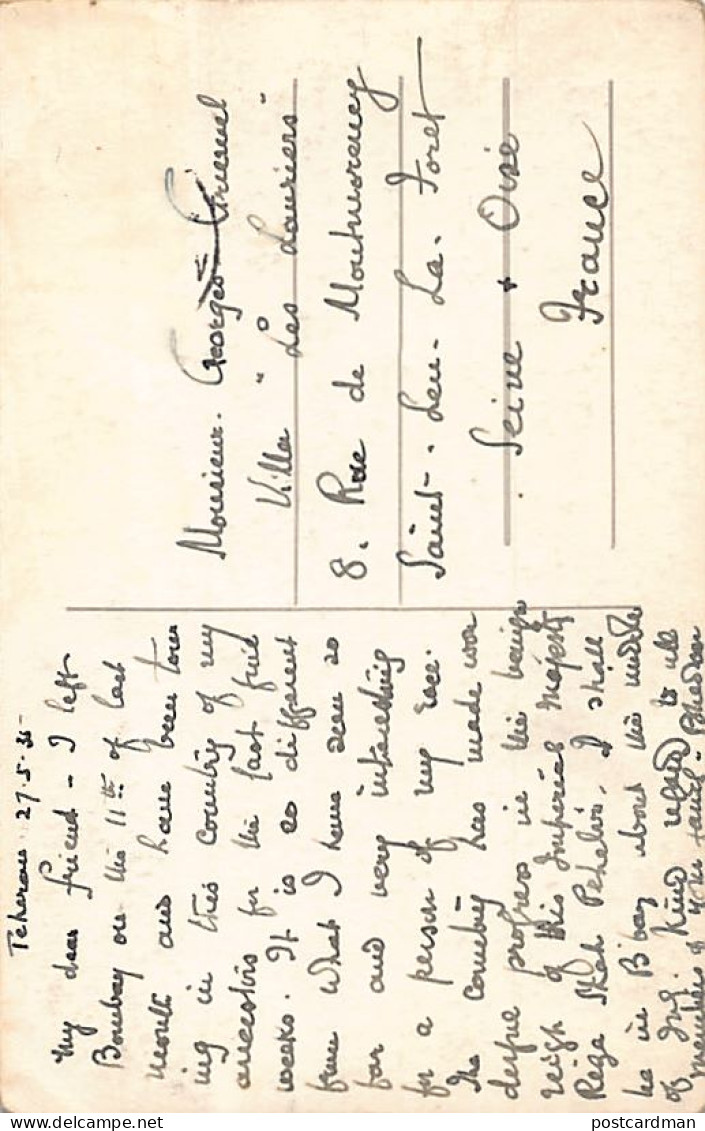 Teheran 27.5.35-
My dear friend - I left
Bombay on the 11th of last
month and have been tour
ing in this country of my
ancestors for the last five
weeks. It is so different
from what I have seen so
far and very interesting
for a person of my race.
The country has made won
derful progress in the benign
reign of His Imperial Majesty
Reza Shah Pehelvi. I shall
be in B'bay about the middle
of July. Kind regards to all
members of your family -
Monsieur. Georges
Villa "Les Lauriers"
8. Rue de Montmorency
Saint. Leu. La. Foret
Seine + Oise
France
www.delcampe.net
postcardman